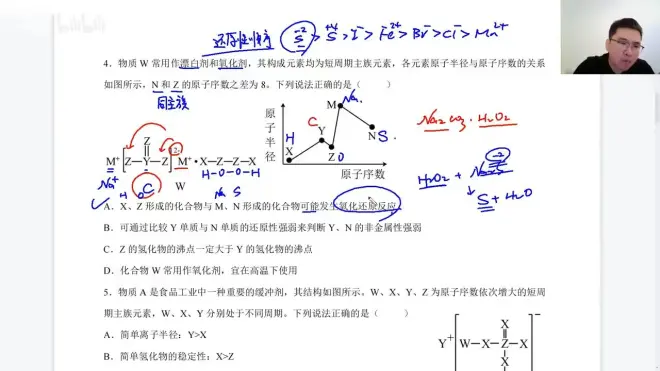 还原性顺序 S⁻² > S⁺⁴ > I⁻ > Fe²⁺ > Br⁻ > Cl⁻ > Mn²⁺
4．物质 W 常用作漂白剂和氧化剂，其构成元素均为短周期主族元素，各元素原子半径与原子序数的关系
如图所示，N 和 Z 的原子序数之差为 8。下列说法正确的是（ ）
同主族
原子半径
M Na
C Y
N S
H X
Z O
原子序数
Na₂CO₃·H₂O₂
Z
M⁺[Z—Y—Z]²⁻M⁺·X—Z—Z—X
Na⁺ C H-O-O-H
W
H O Na S
H₂O₂ + Na₂S
-2
↓
S + H₂O
A．X、Z 形成的化合物与 M、N 形成的化合物可能发生氧化还原反应
B．可通过比较 Y 单质与 N 单质的还原性强弱来判断 Y、N 的非金属性强弱
C．Z 的氢化物的沸点一定大于 Y 的氢化物的沸点
D．化合物 W 常用作氧化剂，宜在高温下使用
5．物质 A 是食品工业中一种重要的缓冲剂，其结构如图所示。W、X、Y、Z 为原子序数依次增大的短周
期主族元素，W、X、Y 分别处于不同周期。下列说法正确的是（ ）
A．简单离子半径：Y>X
B．简单氢化物的稳定性：X>Z
X
Y⁺[W—X—Z—X]⁻
X